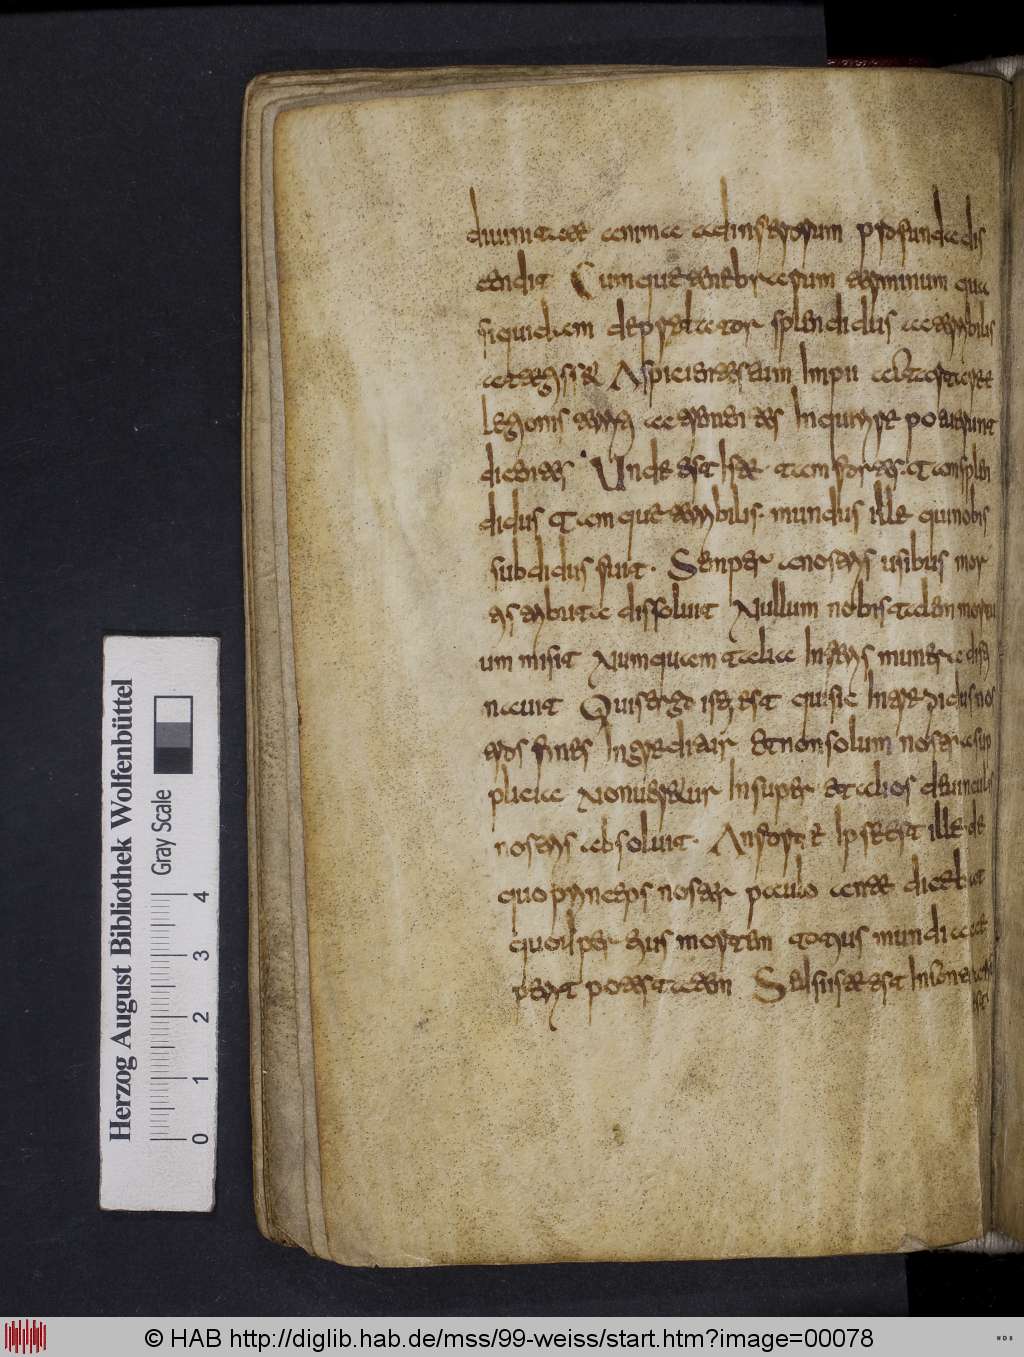 diuinitatis anima ad infernorum profunda dis
cendit Cumque tenebrarum terminum qua
si quidam depraedator splendidus ac terribilis
attegisset Aspicientes eum impii ac tartareae
legionis territi ac trementes inquirere coeperunt
dicentes Unde est iste tam fortis tam splen
didus tam que terribilis mundus ille qui nobis
subditus fuit Semper nostris usibus mor
tis tributa dissoluit Nullum nobis talem mortu
um misit Numquam talia inferis munera desti
nauit Quis ergo iste est qui sic intrepidus nos
tros fines ingreditur Et non solum nostra sup
plicia non ueretur Insuper et alios de uinculis
nostris absoluit An forte ipse est ille de
quo princeps noster paulo ante dicebat
quod per eius mortem totius mundi acci
perit potestatem Sed si iste est in sententia
Herzog August Bibliothek Wolfenbüttel
Gray Scale
0 1 2 3 4
© HAB http://diglib.hab.de/mss/99-weiss/start.htm?image=00078